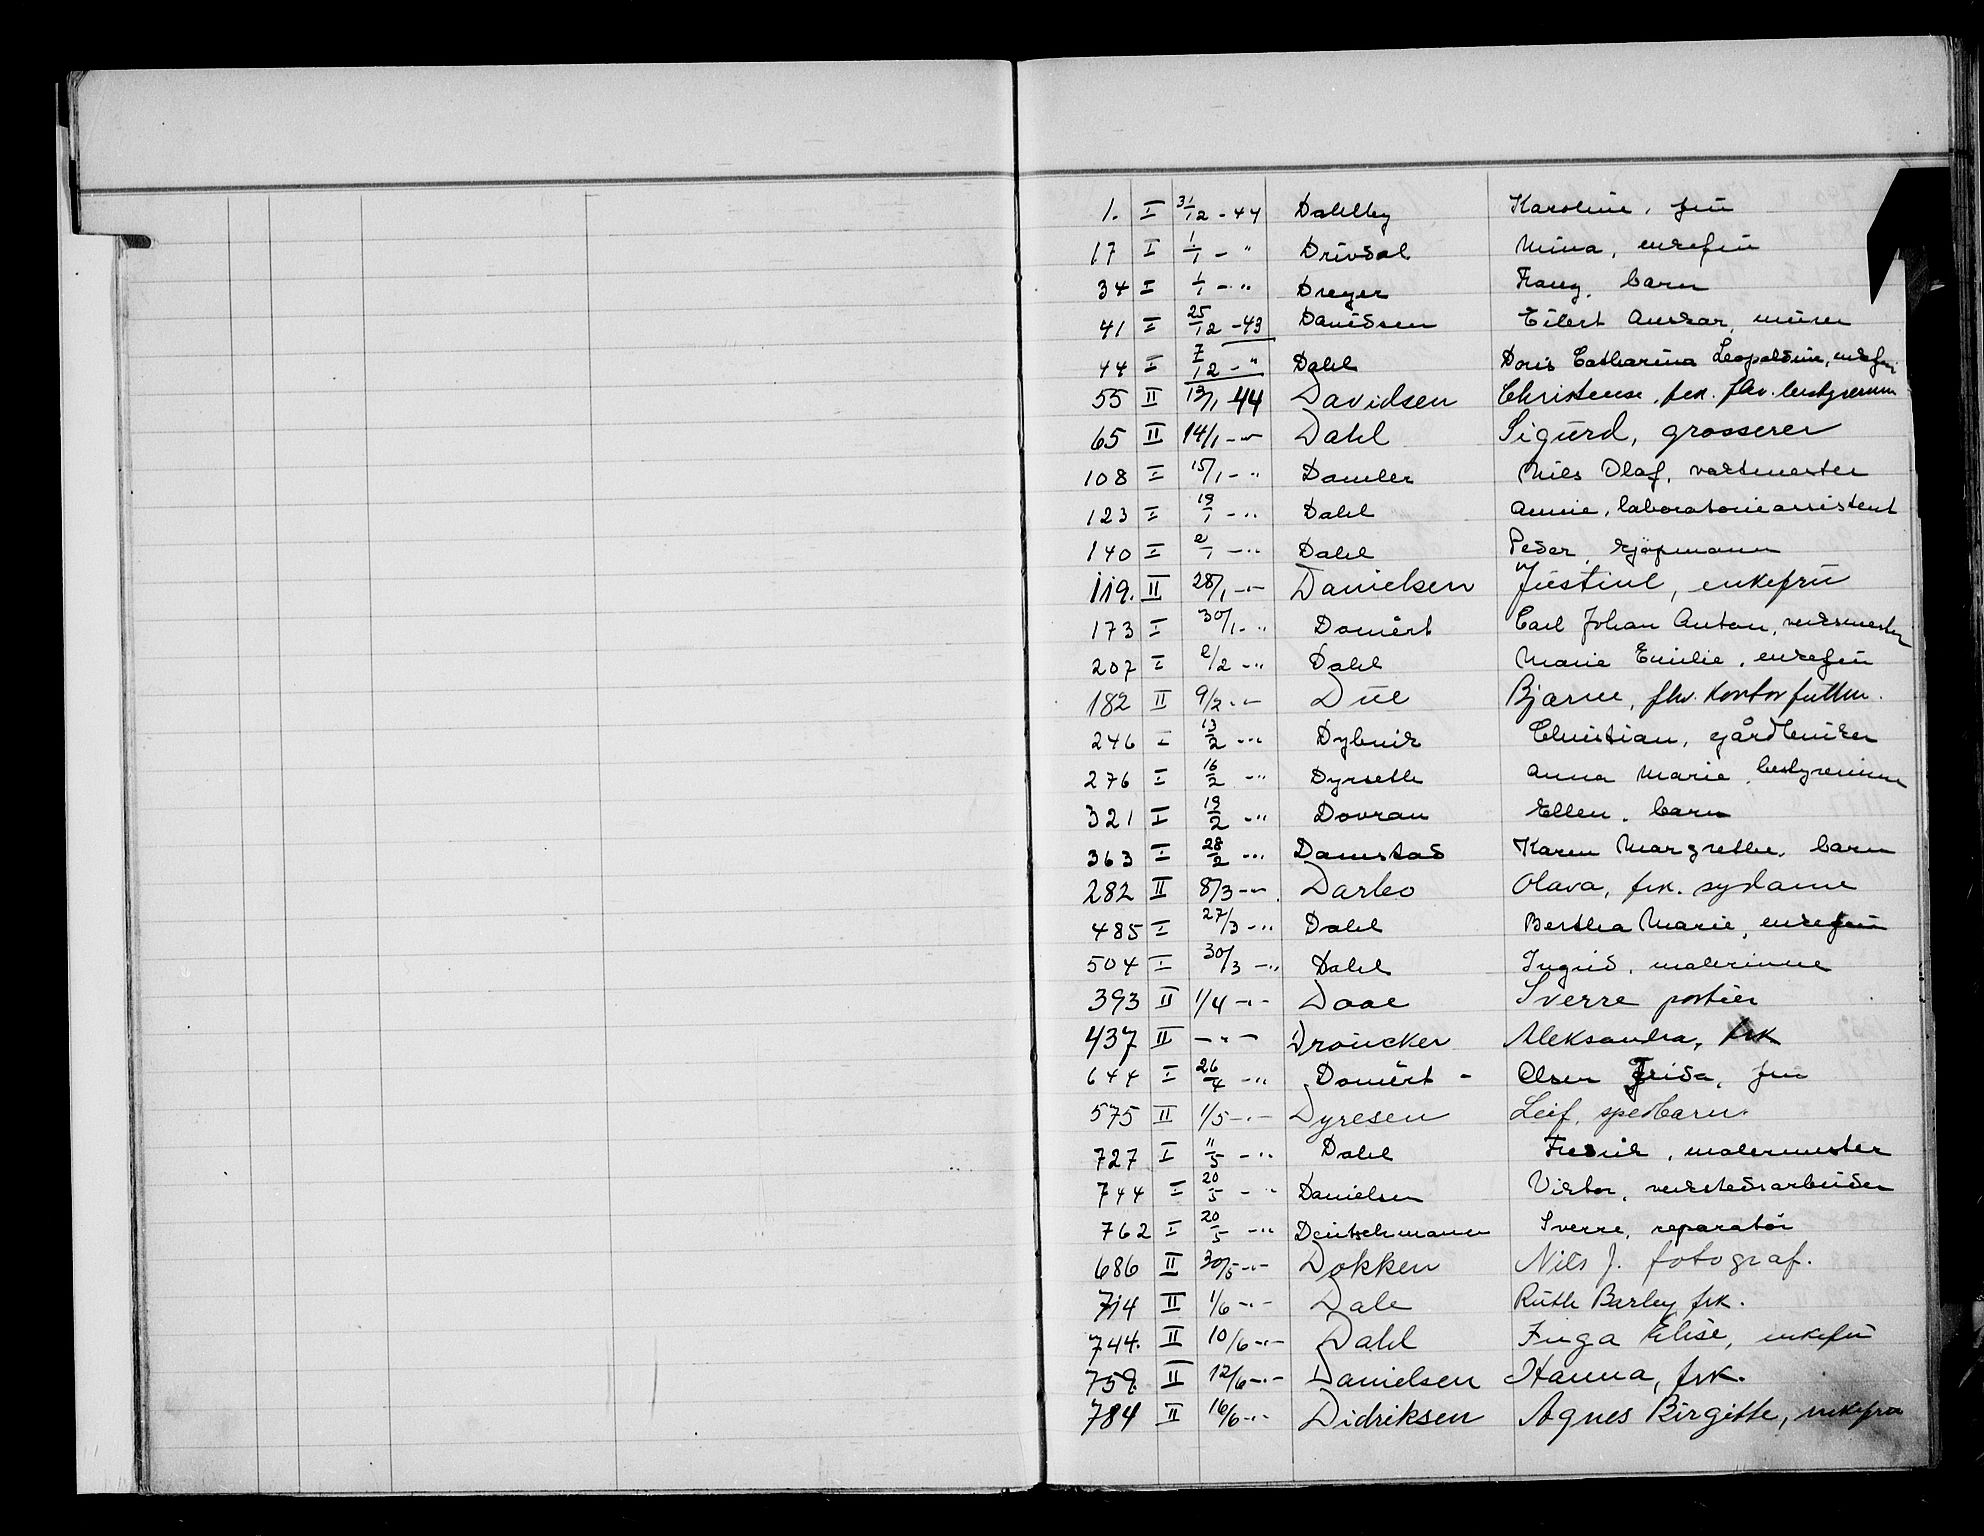 1. I 31/12 - 44 Dahlby Karoline, fru
17 I 1/1 - " Drivdal Mina, enkefru
34 I 1/1 - " Dreyer barn
41 I 25/12 - 43 Davidsen Eilert Anskar, murer
44 I 7/12 - " Dahl Doris Catharina Leopoldine, enkefru
55 II 13/1 44 Davidsen Christense, frk. fhv. bestyrerinne
65 II 14/1 - " - Dahl Sigurd, grosserer
108 I 15/1 - " Damler Nils Olaf, vaktmester
123 I 19/1 - " Dahl Annie, laboratorieassistent
140 I 2/1 - " Dahl Peder, kjøpmann
119. II 28/1 - " - Danielsen Justine, enkefru
173 I 30/1 - " Domért Carl Johan Anton, verksmester
207 I 2/2 - " Dahl Marie Emilie, enkefru
182 II 9/2 - " - Due Bjarne, fhv. kontorfullm.
246 I 13/2 - " Dybvik Christian, gårdbruker
276 I 16/2 - " Dyrseth Anna Marie, bestyrerinne
321 I 19/2 - " Dovran Ellen, barn
363 I 28/2 - " Damstad Karen Margrethe, barn
282 II 8/3 - " - Darbo Olava, frk. sydame
485 I 27/3 - " Dahl Bertha Marie, enkefru
504 I 30/3 - " Dahl Ingrid, malerinne
393 II 1/4 - " - Daae Sverre portier
437 II - " - Droucker Aleksandra, frk
644 I 26/4 - " Domért - Olsen Frida, fru
575 II 1/5 - " - Dyresen Leif, spedbarn.
727 I 11/5 - " Dahl Fredrik, malermester
744 I 20/5 - " Danielsen Viktor, verkstedsarbeider
762 I 20/5 - " Deutschmann Sverre, reparatør
686 II 30/5 - " - Dokken Nils J. fotograf.
714 II 1/6 - " - Dale Ruth Barley frk.
744. II 10/6 - " - Dahl Inga Elise, enkefru
759. II 12/6 - " - Danielsen Hanna, frk.
784 II 16/6 - " - Didriksen Agnes Birgitte, enkefru